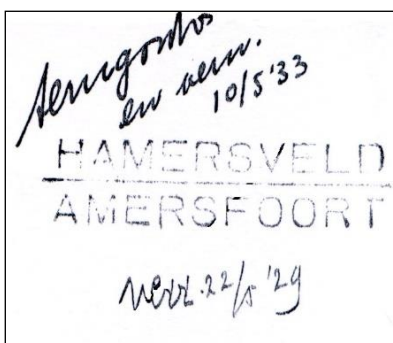 terugontv.
en vern.
10/5 '33
HAMERSVELD
AMERSFOORT
verz. 22/5 '29